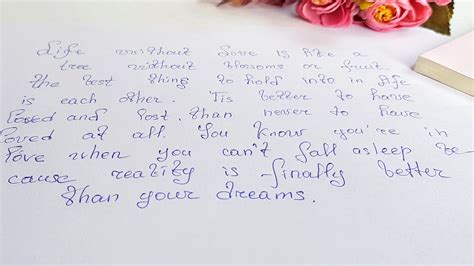 Life without love is like a
tree without blossoms or fruit.
the best thing to hold into in life
is each other. Tis better to have
loved and lost. than never to have
loved at all. You know you're in
love when you can't fall asleep be
cause reality is finally better
than your dreams.